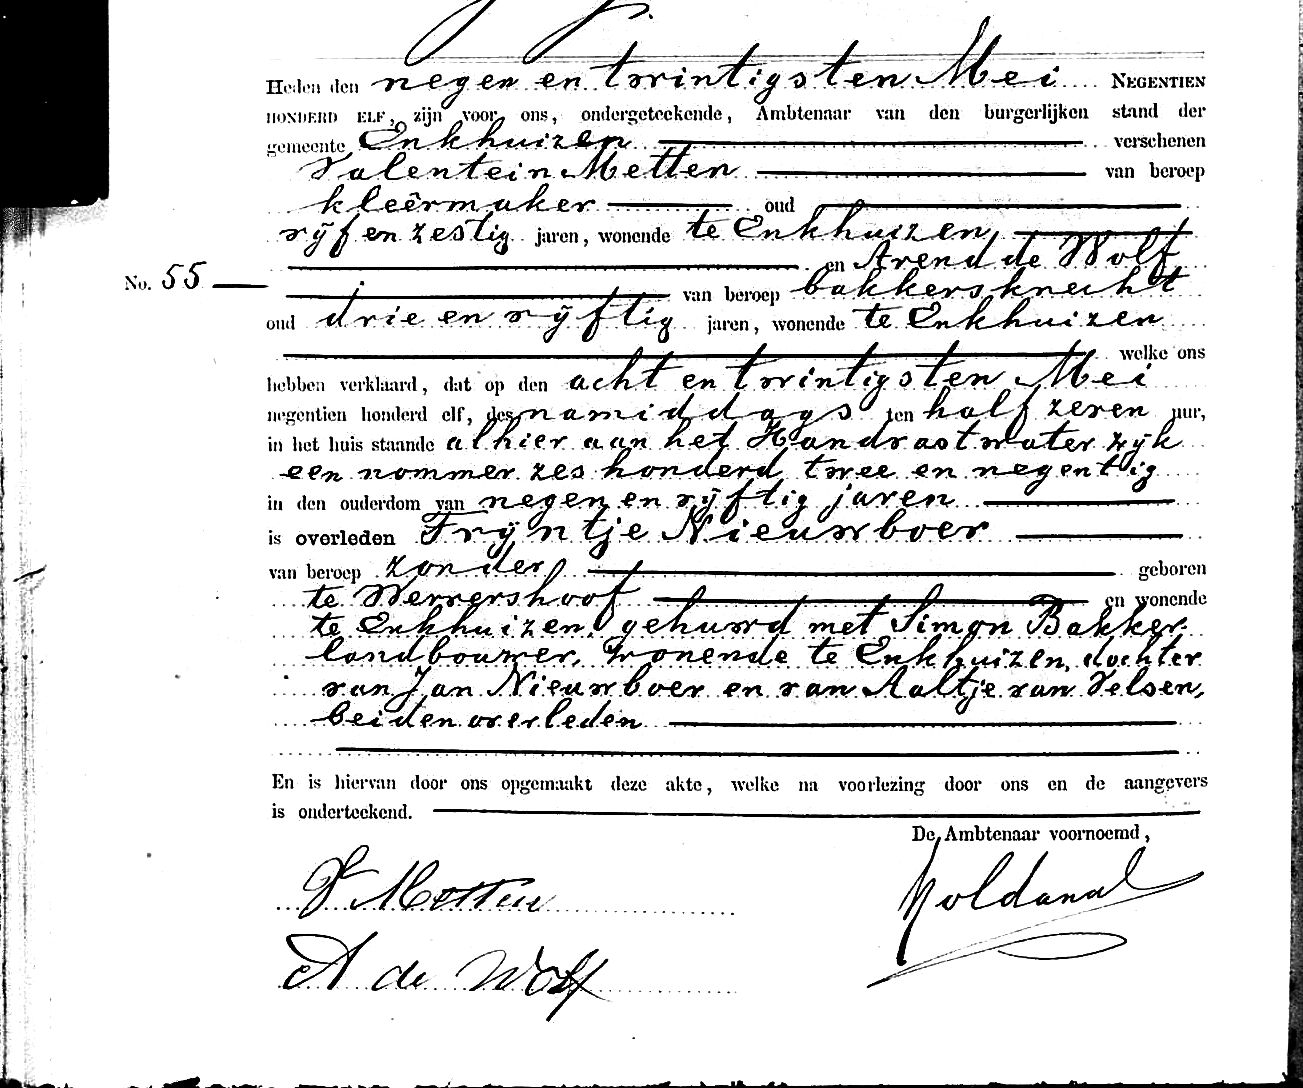 Heden den negen en twintigsten Mei NEGENTIEN
HONDERD ELF, zijn voor ons, ondergeteekende, Ambtenaar van den burgerlijken stand der
gemeente Enkhuizen verschenen
Valentein Metten van beroep
kleêrmaker oud
vijf en zestig jaren, wonende te Enkhuizen,
en Arend de Wolf
No. 55 van beroep bakkersknecht
oud drie en vijftig jaren, wonende te Enkhuizen
welke ons
hebben verklaard, dat op den acht en twintigsten Mei
negentien honderd elf, des namiddags ten half zeven uur,
in het huis staande alhier aan het Handvastwater wijk
een nommer zes honderd twee en negentig
in den ouderdom van negen en vijftig jaren
is overleden Trijntje Nieuwboer
van beroep zonder geboren
te Wervershoof en wonende
te Enkhuizen, gehuwd met Simon Bakker
landbouwer, wonende te Enkhuizen, dochter
van Jan Nieuwboer en van Aaltje van Velsen,
beiden overleden
En is hiervan door ons opgemaakt deze akte, welke na voorlezing door ons en de aangevers
is onderteekend.
De Ambtenaar voornoemd,
V Metten
A de Wolf